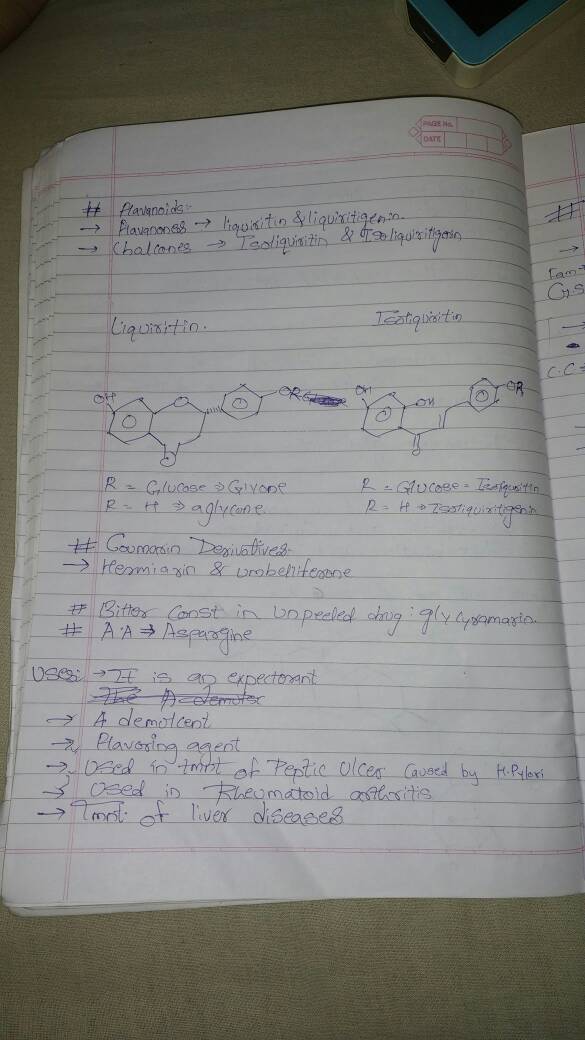 PAGE NO.
DATE
# Flavanoids:-
→ Flavanones → liquiritin & liquiritigenin.
→ Chalcones → Isoliquiritin & Isoliquiritigenin
Liquiritin. Isoliquiritin
OH O OR O
OH OH OR O
R = Glucose ⇒ Glycone R = Glucose =
R = H ⇒ aglycone. R = H ⇒ Isoliquiritigenin
# Coumarin Derivatives-
→ Herniarin & umbelliferone
# Bitter Const in unpeeled drug : glycyramarin.
# A.A ⇒ Aspargine
Uses: → It is an expectorant
→ A demulcent
→ Flavoring agent
→ Used in tmnt of Peptic Ulcer Caused by H.Pylori
Used in Rheumatoid arthritis
→ Tmnt. of liver diseases
#
→
C.C